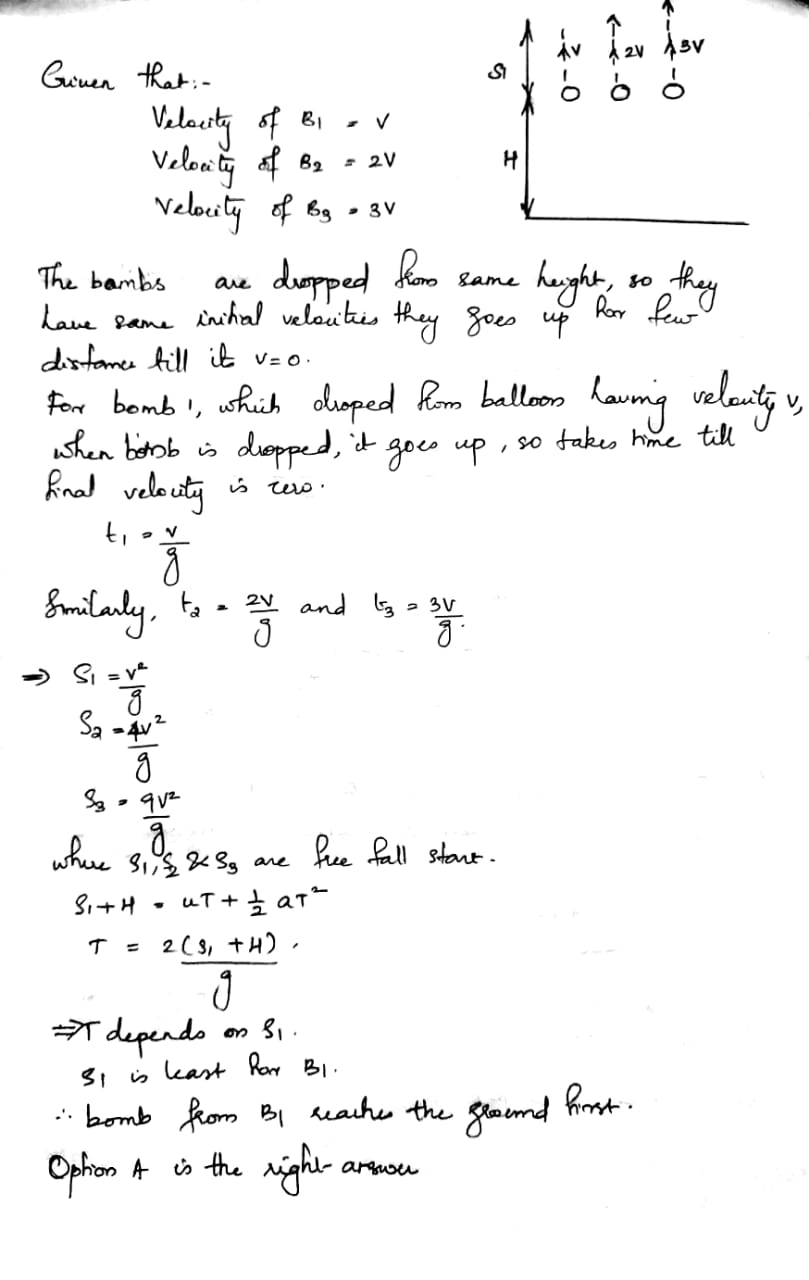 Given that:-
Velocity of B1 = V
Velocity of B2 = 2V
Velocity of B3 = 3V
S1
H
V
2V
3V
The bambs are dropped from same height, so they
have same initial velocities they goes up for few
distance till it v=0.
For bomb 1, which droped from balloon having velocity v,
when bomb is dropped, it goes up, so takes time till
final velocity is zero.
t1 = v/g
Similarly, t2 = 2v/g and t3 = 3v/g.
⇒ S1 = v²/g
S2 = 4v²/g
S3 = 9v²/g
where S1, S2 & S3 are free fall start.
S1+H = uT + 1/2 aT²
T = 2(S1 +H)/g.
⇒T depends on S1.
S1 is least for B1.
∴ bomb from B1 reaches the ground first.
Option A is the right answer